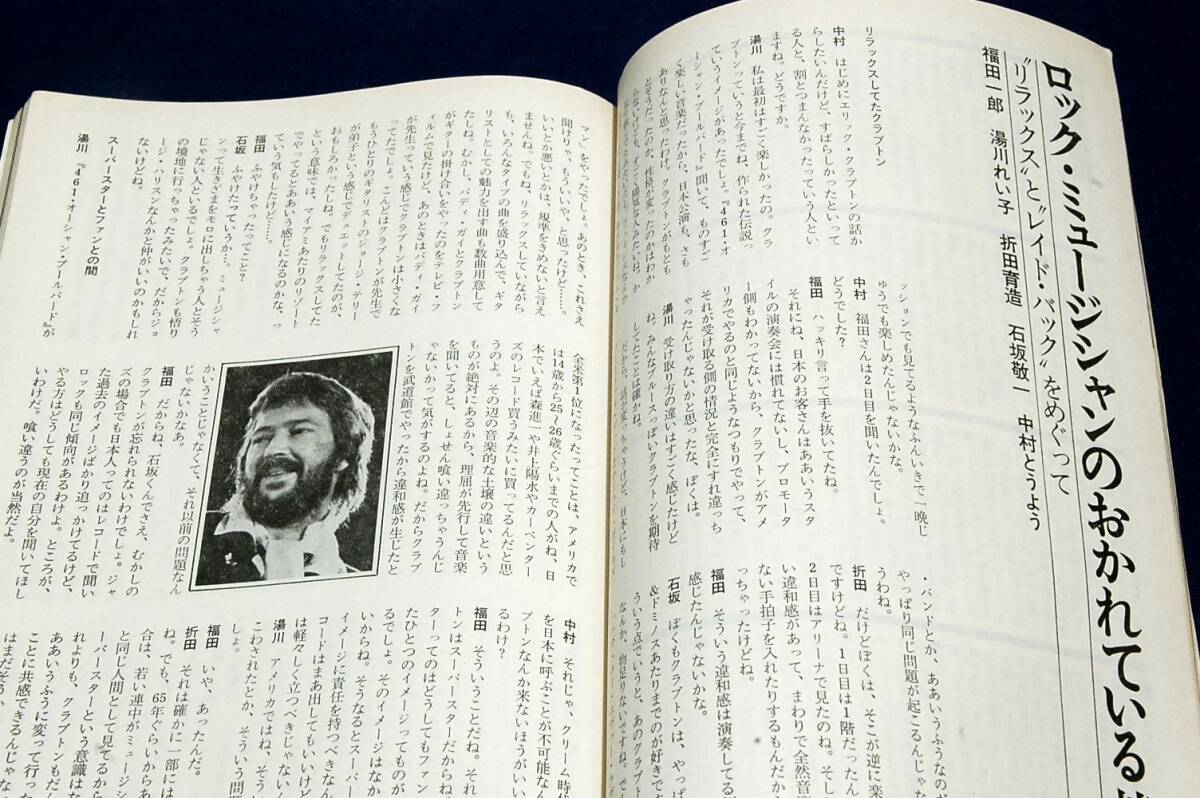 ロック・ミュージシャンのおかれている
〝リラックス〟と〝レイド・バック〟をめぐって
福田一郎　湯川れい子　折田育造　石坂敬一　中村とうよう
リラックスしてたクラプトン
中村　はじめにエリック・クラプトンの話か
らしたいんだけど、すばらしかったといって
る人と、割とつまんなかったっていう人とい
ますね。どうですか。
湯川　私は最初はすごく楽しかったの。クラ
プトンっていうと今までね、作られた伝説っ
ていうイメージがあったでしょ。『461・オ
ーシャン・ブールバード』聞いて、ものすご
く楽しい音楽だったから、日本公演も、さも
ありなんと思ったけど。クラプトンがもとも
とそうだったのか、性格が変ったのかはわか
らないけども、すごく陽気な人みたいね。
ッションでも見てるようなふんいきで一晩じ
ゅうでも楽しめたんじゃないかな。
中村　福田さんは2日目を聞いたんでしょ。
どうでした？
福田　ハッキリ言って手を抜いてたね。
それにね、日本のお客さんはああいうスタ
イルの演奏会には慣れてないし、プロモータ
ー側もわかってないから、クラプトンがアメ
リカでやるのと同じようなつもりでやって、
それが受け取る側の情況と完全にすれ違っち
ゃったんじゃないかと思ったな、ぼくは。
湯川　受け取り方の違いはすごく感じたけど
ね。みんなブルースっぽいクラプトンを期待
してたことは確かね。
・バンドとか、ああいうふうなのが
やっぱり同じ問題が起こるんじゃな
うわね。
折田　だけどぼくは、そこが逆に
ですけどね。1日目は1階だったん
2日目はアリーナで見たのね。そし
い違和感があって、まわりで全然音楽
ない手拍子を入れたりするもんだから
っちゃったけどね。
福田　そういう違和感は演奏してる
感じたんじゃないかな。
石坂　ぼくもクラプトンは、やっぱ
＆ドミノスあたりまでのが好きで
ういう点でいうと、あのクラプト
なんか、物足りないですね。で
マン』をやったでしょ。あのとき、これさえ
聞けりゃ、もういいや、と思ったけど……。
いいとか悪いとかは、規準をきめないと言え
ませんね。でもね、リラックスしていながら
も、いろんなタイプの曲を盛り込んで、ギタ
リストとしての魅力を出す曲も数曲用意して
たしね。むかし、バディ・ガイとクラプトン
がギターの掛け合いをやったのをテレビ・フ
ィルムで見たけど、あのときはバディ・ガイ
が先生っていう感じでクラプトンは小さくな
ってたでしょ。こんどはクラプトンが先生で
もうひとりのギタリストのジョージ・テリー
が弟子という感じでデュエットしてたのが、
おもしろかったしね。でもリラックスしてた
という意味では、マイアミあたりのリゾート
でやってるとああいう感じになるのかな、っ
ていう気もしたけど……。
福田　ふやけちゃったってこと？
石坂　ふやけたっていうか…。ミュージシャ
ンって生きざまをモロに出しちゃう人とそう
じゃない人といるでしょ。クラプトンも悟り
の境地に行っちゃったみたいで、だからジョ
ージ・ハリスンなんかと仲がいいのかもしれ
ないけどね。
スーパースターとファンとの間
湯川　『461・オーシャン・ブールバード』が
全米第1位になったってことは、アメリカで
は14歳から25・26歳ぐらいまでの人がね、日
本でいえば森進一や井上陽水やカーペンター
ズのレコード買うみたいに買ってるんだと思
うのよ。その辺の音楽的な土壌の違いという
ものが絶対にあるから、理屈が先行して音楽
を聞いてると、しょせん喰い違っちゃうんじ
ゃないかって気がするのよね。だからクラプ
トンを武道館でやったから違和感が生じたと
かいうことじゃなくて、それ以前の問題なん
じゃないかなあ。
福田　だからね、石坂くんでさえ、むかしの
クラプトンが忘れられないわけでしょ。ジャ
ズの場合でも日本人ってのはレコードで聞い
た過去のイメージばかり追っかけてるけど、
ロックも同じ傾向があるわけよ。ところが、
やる方はどうしても現在の自分を聞いてほし
いわけだ。喰い違うのが当然だよ。
中村　それじゃ、クリーム時代
を日本に呼ぶことが不可能なん
プトンなんか来ないほうがいい
るわけ？
福田　そういうことだね。それ
トンはスーパースターだからね
ターってのはどうしてもファン
たひとつのイメージってものが
るでしょ。そのイメージはなか
いからね。そうなるとスーパー
イメージに責任を持つべきなん
コードはまあ出してもいいけど
は軽々しく立つべきじゃないん
湯川　アメリカではね、そうい
こわされたとか、そういう問題
しょ。
福田　いや、あったんだ。
折田　それは確かに一部には
ね。でも、65年ぐらいからあ
合は、若い連中がミュージシ
と同じ人間として見てるから
ーパースターという意識はな
れよりも、クラプトンもだん
ああいうふうに変って行った
ことに共感できるんじゃな
はまだそう、